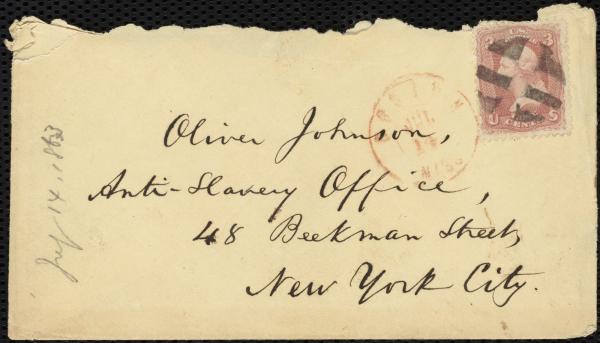 Oliver Johnson,
Anti-Slavery Office,
48 Beekman Street,
New York City.
July 14, 1863
BOSTON
JUL
MASS
3 U.S. 3
U CENTS S